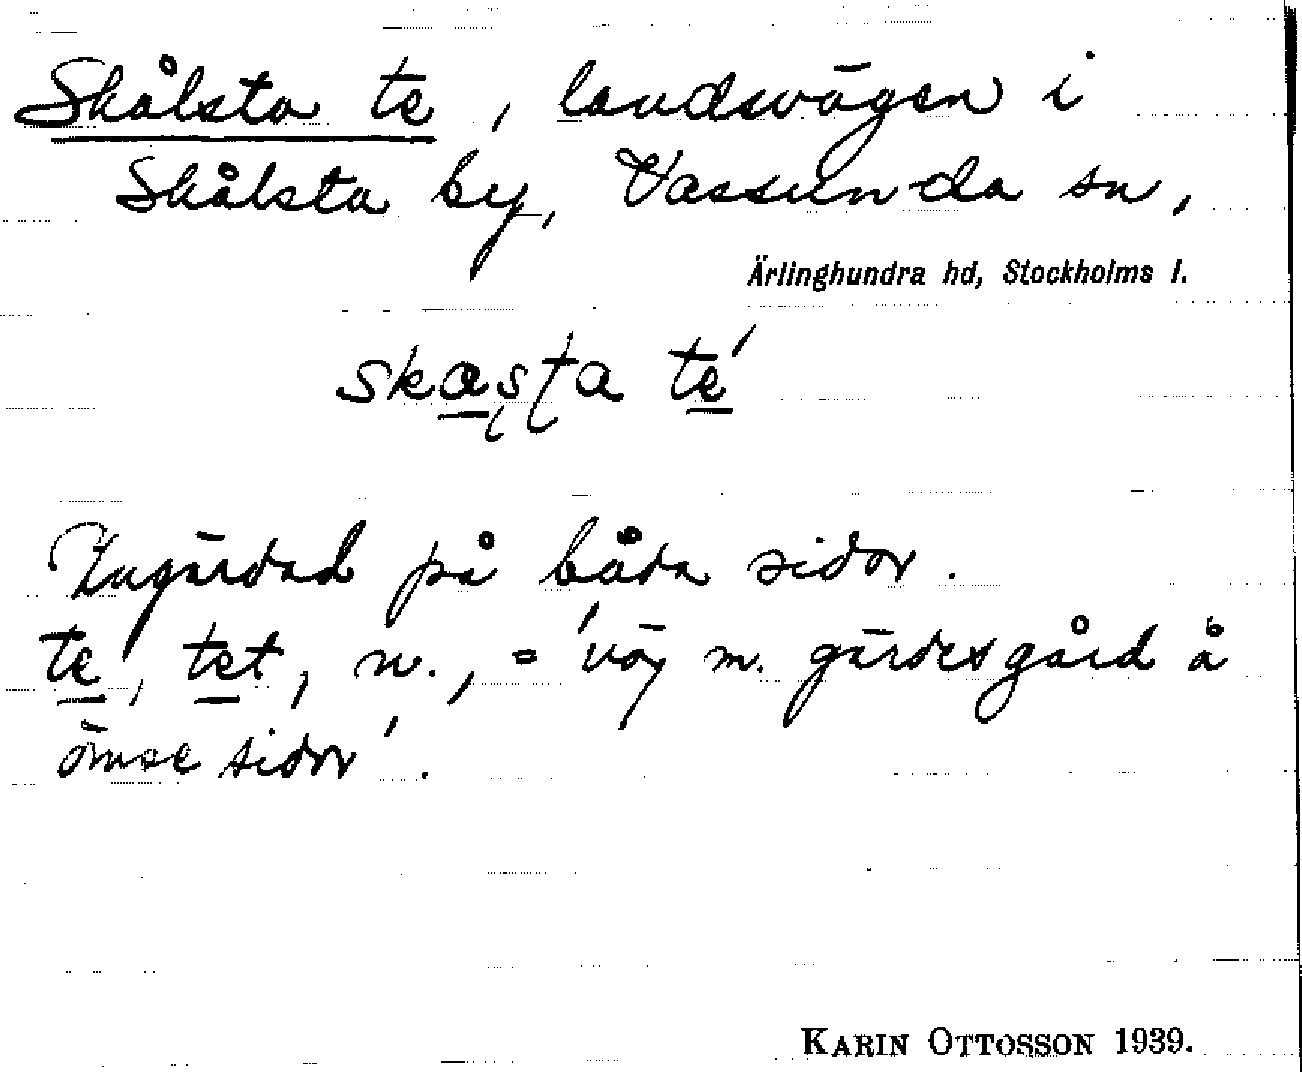 Skålsta te, landsvägen i
Skålsta by, Vassunda sn,
Ärlinghundra hd, Stockholms l.
skas̨ţa té
Ingärdad på båda sidor.
te, tet, n., = 'väg m. gärdesgård å
ömse sidor'.
KARIN OTTOSSON 1939.